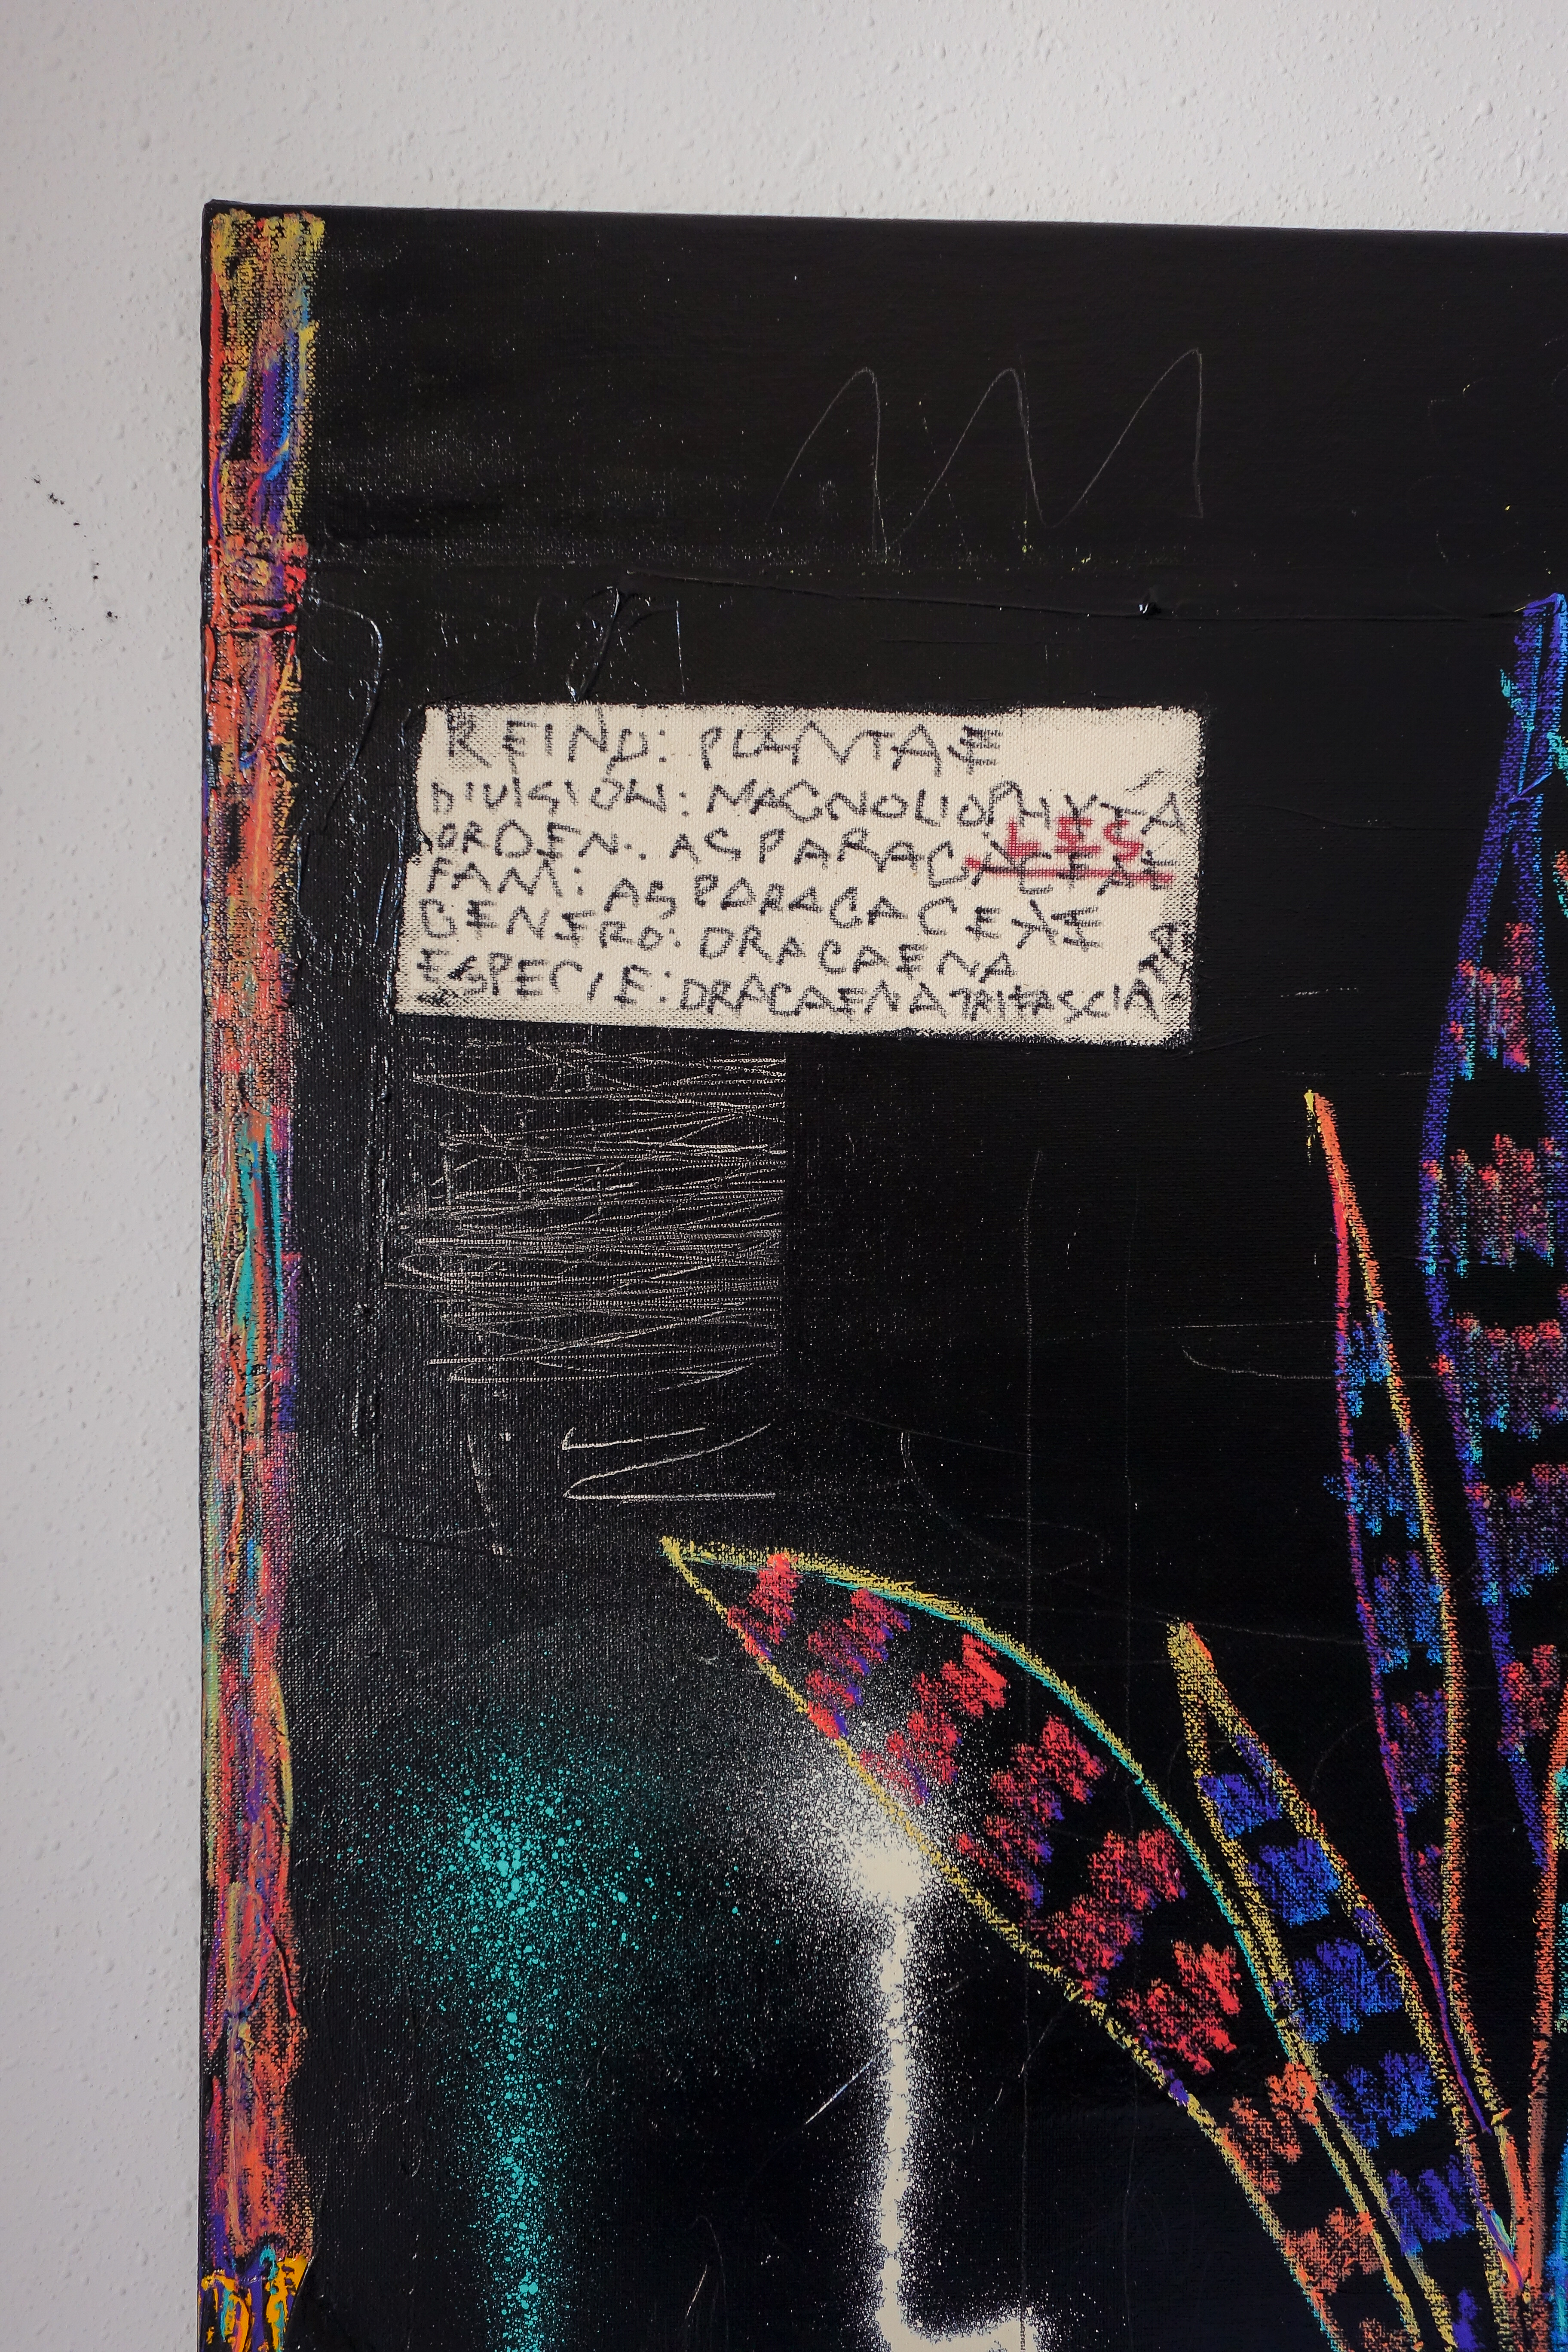 REINO: PLANTAE
DIVISIÓN: MAGNOLIOPHYTA
ORDEN: ASPARAGACEAE LES
FAM: ASPARAGACEAE
GENERO: DRACAENA
ESPECIE: DRACAENA TRIFASCIATA